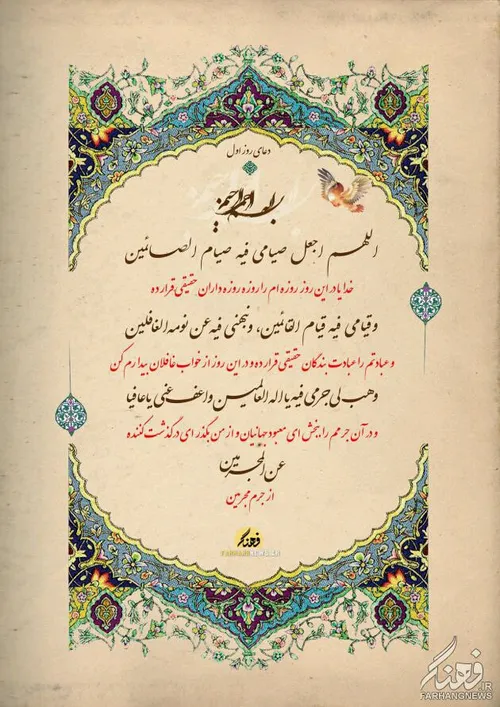 دعای روز اول
بسم الله الرحمن الرحیم
اللهم اجعل صیامی فیه صیام الصائمین
خدایا در این روز روزه ام را روزه روزه داران حقیقی قرار ده
و قیامی فیه قیام القائمین، و نبهنی فیه عن نومه الغافلین
و عبادتم را عبادت بندگان حقیقی قرار ده و در این روز از خواب غافلان بیدارم کن
وهب لی جرمی فیه یا اله العالمین واعف عنی یا عافیا
و در آن جرمم را ببخش ای معبود جهانیان و از من بگذر ای درگذشت کننده
عن المجرمین
از جرم مجرمین
فرهنگ
FARHANGNEWS.IR
فرهنگ
.IR
FARHANGNEWS